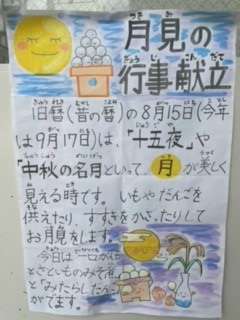 月見の
行事献立
旧暦(昔の暦)の8月15日(今年
は9月17日)は、「十五夜」や
「中秋の名月」といって、月が美しく
見える時です。いもやだんごを
供えたり、すすきをかざったりして
お月見をします。
今日は
とさといものみそ汁
と「みたらしだんご」
がでます。